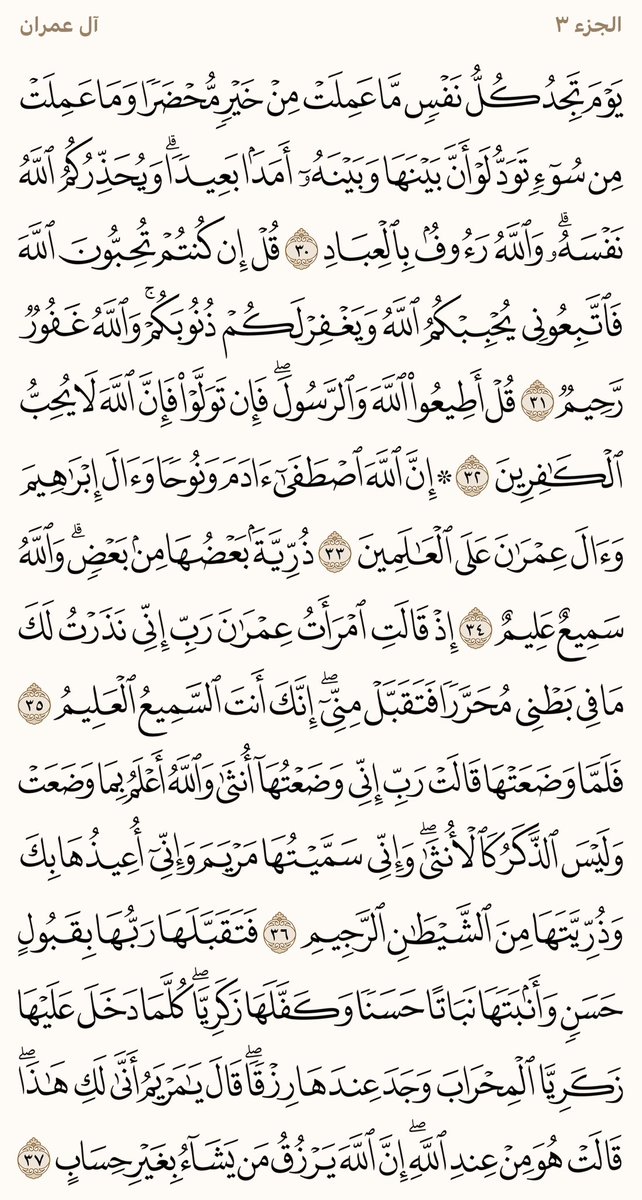 الجزء ٣
آل عمران
يَوْمَ تَجِدُ كُلُّ نَفْسٍ مَّا عَمِلَتْ مِنْ خَيْرٍ مُّحْضَرًا وَمَا عَمِلَتْ
مِن سُوٓءٍ تَوَدُّ لَوْ أَنَّ بَيْنَهَا وَبَيْنَهُۥٓ أَمَدًۢا بَعِيدًاۗ وَيُحَذِّرُكُمُ ٱللَّهُ
نَفْسَهُۥۗ وَٱللَّهُ رَءُوفُۢ بِٱلْعِبَادِ ٣٠ قُلْ إِن كُنتُمْ تُحِبُّونَ ٱللَّهَ
فَٱتَّبِعُونِى يُحْبِبْكُمُ ٱللَّهُ وَيَغْفِرْ لَكُمْ ذُنُوبَكُمْۚ وَٱللَّهُ غَفُورٌ
رَّحِيمٌ ٣١ قُلْ أَطِيعُوا۟ ٱللَّهَ وَٱلرَّسُولَۖ فَإِن تَوَلَّوْا۟ فَإِنَّ ٱللَّهَ لَا يُحِبُّ
ٱلْكَٰفِرِينَ ٣٢ * إِنَّ ٱللَّهَ ٱصْطَفَىٰٓ ءَادَمَ وَنُوحًا وَءَالَ إِبْرَٰهِيمَ
وَءَالَ عِمْرَٰنَ عَلَى ٱلْعَٰلَمِينَ ٣٣ ذُرِّيَّةًۢ بَعْضُهَا مِنۢ بَعْضٍۗ وَٱللَّهُ
سَمِيعٌ عَلِيمٌ ٣٤ إِذْ قَالَتِ ٱمْرَأَتُ عِمْرَٰنَ رَبِّ إِنِّى نَذَرْتُ لَكَ
مَا فِى بَطْنِى مُحَرَّرًا فَتَقَبَّلْ مِنِّىٓۖ إِنَّكَ أَنتَ ٱلسَّمِيعُ ٱلْعَلِيمُ ٣٥
فَلَمَّا وَضَعَتْهَا قَالَتْ رَبِّ إِنِّى وَضَعْتُهَآ أُنثَىٰ وَٱللَّهُ أَعْلَمُ بِمَا وَضَعَتْ
وَلَيْسَ ٱلذَّكَرُ كَٱلْأُنثَىٰۖ وَإِنِّى سَمَّيْتُهَا مَرْيَمَ وَإِنِّىٓ أُعِيذُهَا بِكَ
وَذُرِّيَّتَهَا مِنَ ٱلشَّيْطَٰنِ ٱلرَّجِيمِ ٣٦ فَتَقَبَّلَهَا رَبُّهَا بِقَبُولٍ
حَسَنٍ وَأَنۢبَتَهَا نَبَاتًا حَسَنًا وَكَفَّلَهَا زَكَرِيَّاۖ كُلَّمَا دَخَلَ عَلَيْهَا
زَكَرِيَّا ٱلْمِحْرَابَ وَجَدَ عِندَهَا رِزْقًاۖ قَالَ يَٰمَرْيَمُ أَنَّىٰ لَكِ هَٰذَاۖ
قَالَتْ هُوَ مِنْ عِندِ ٱللَّهِۖ إِنَّ ٱللَّهَ يَرْزُقُ مَن يَشَآءُ بِغَيْرِ حِسَابٍ ٣٧